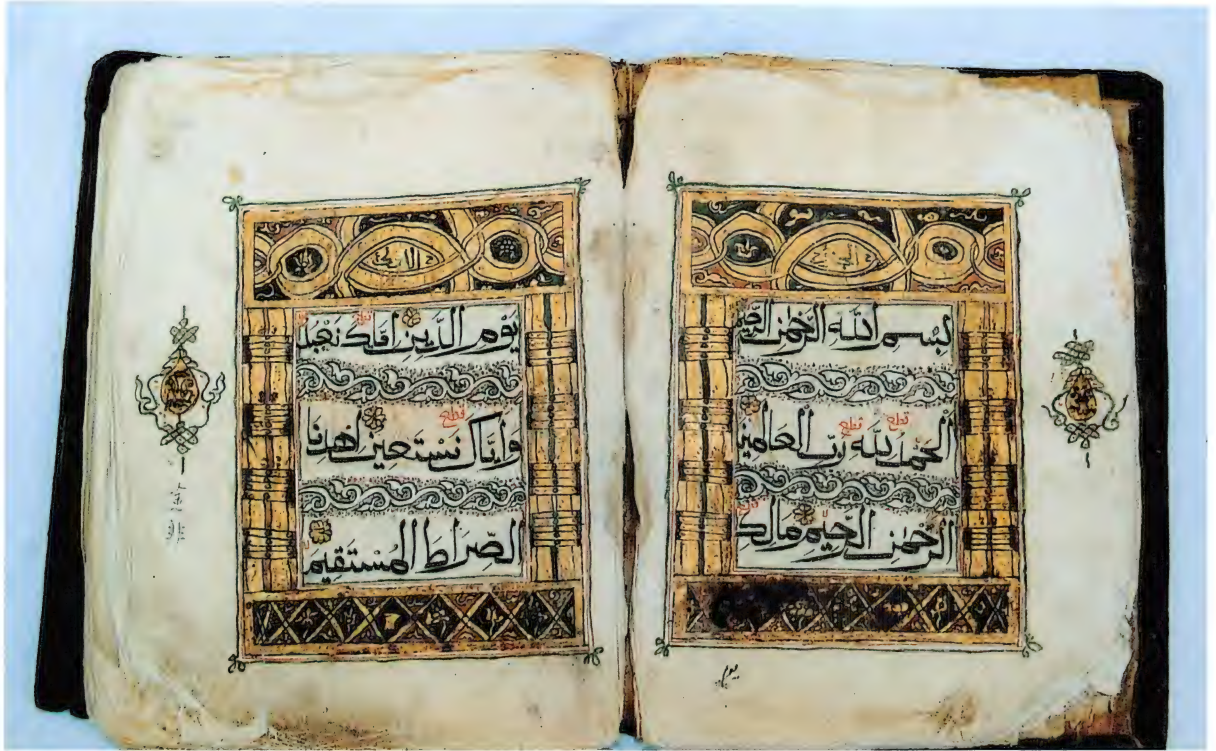 بِسْمِ اللّٰهِ الرَّحْمٰنِ الرَّحِيْمِ
قطع قطع
اَلْحَمْدُ لِلّٰهِ رَبِّ الْعَالَمِيْنَ
الرَّحْمٰنِ الرَّحِيْمِ مَالِكِ
يوم
قطع
يَوْمِ الدِّيْنِ اِيَّاكَ نَعْبُدُ
قطع
وَاِيَّاكَ نَسْتَعِيْنُ اِهْدِنَا
الصِّرَاطَ الْمُسْتَقِيْمَ